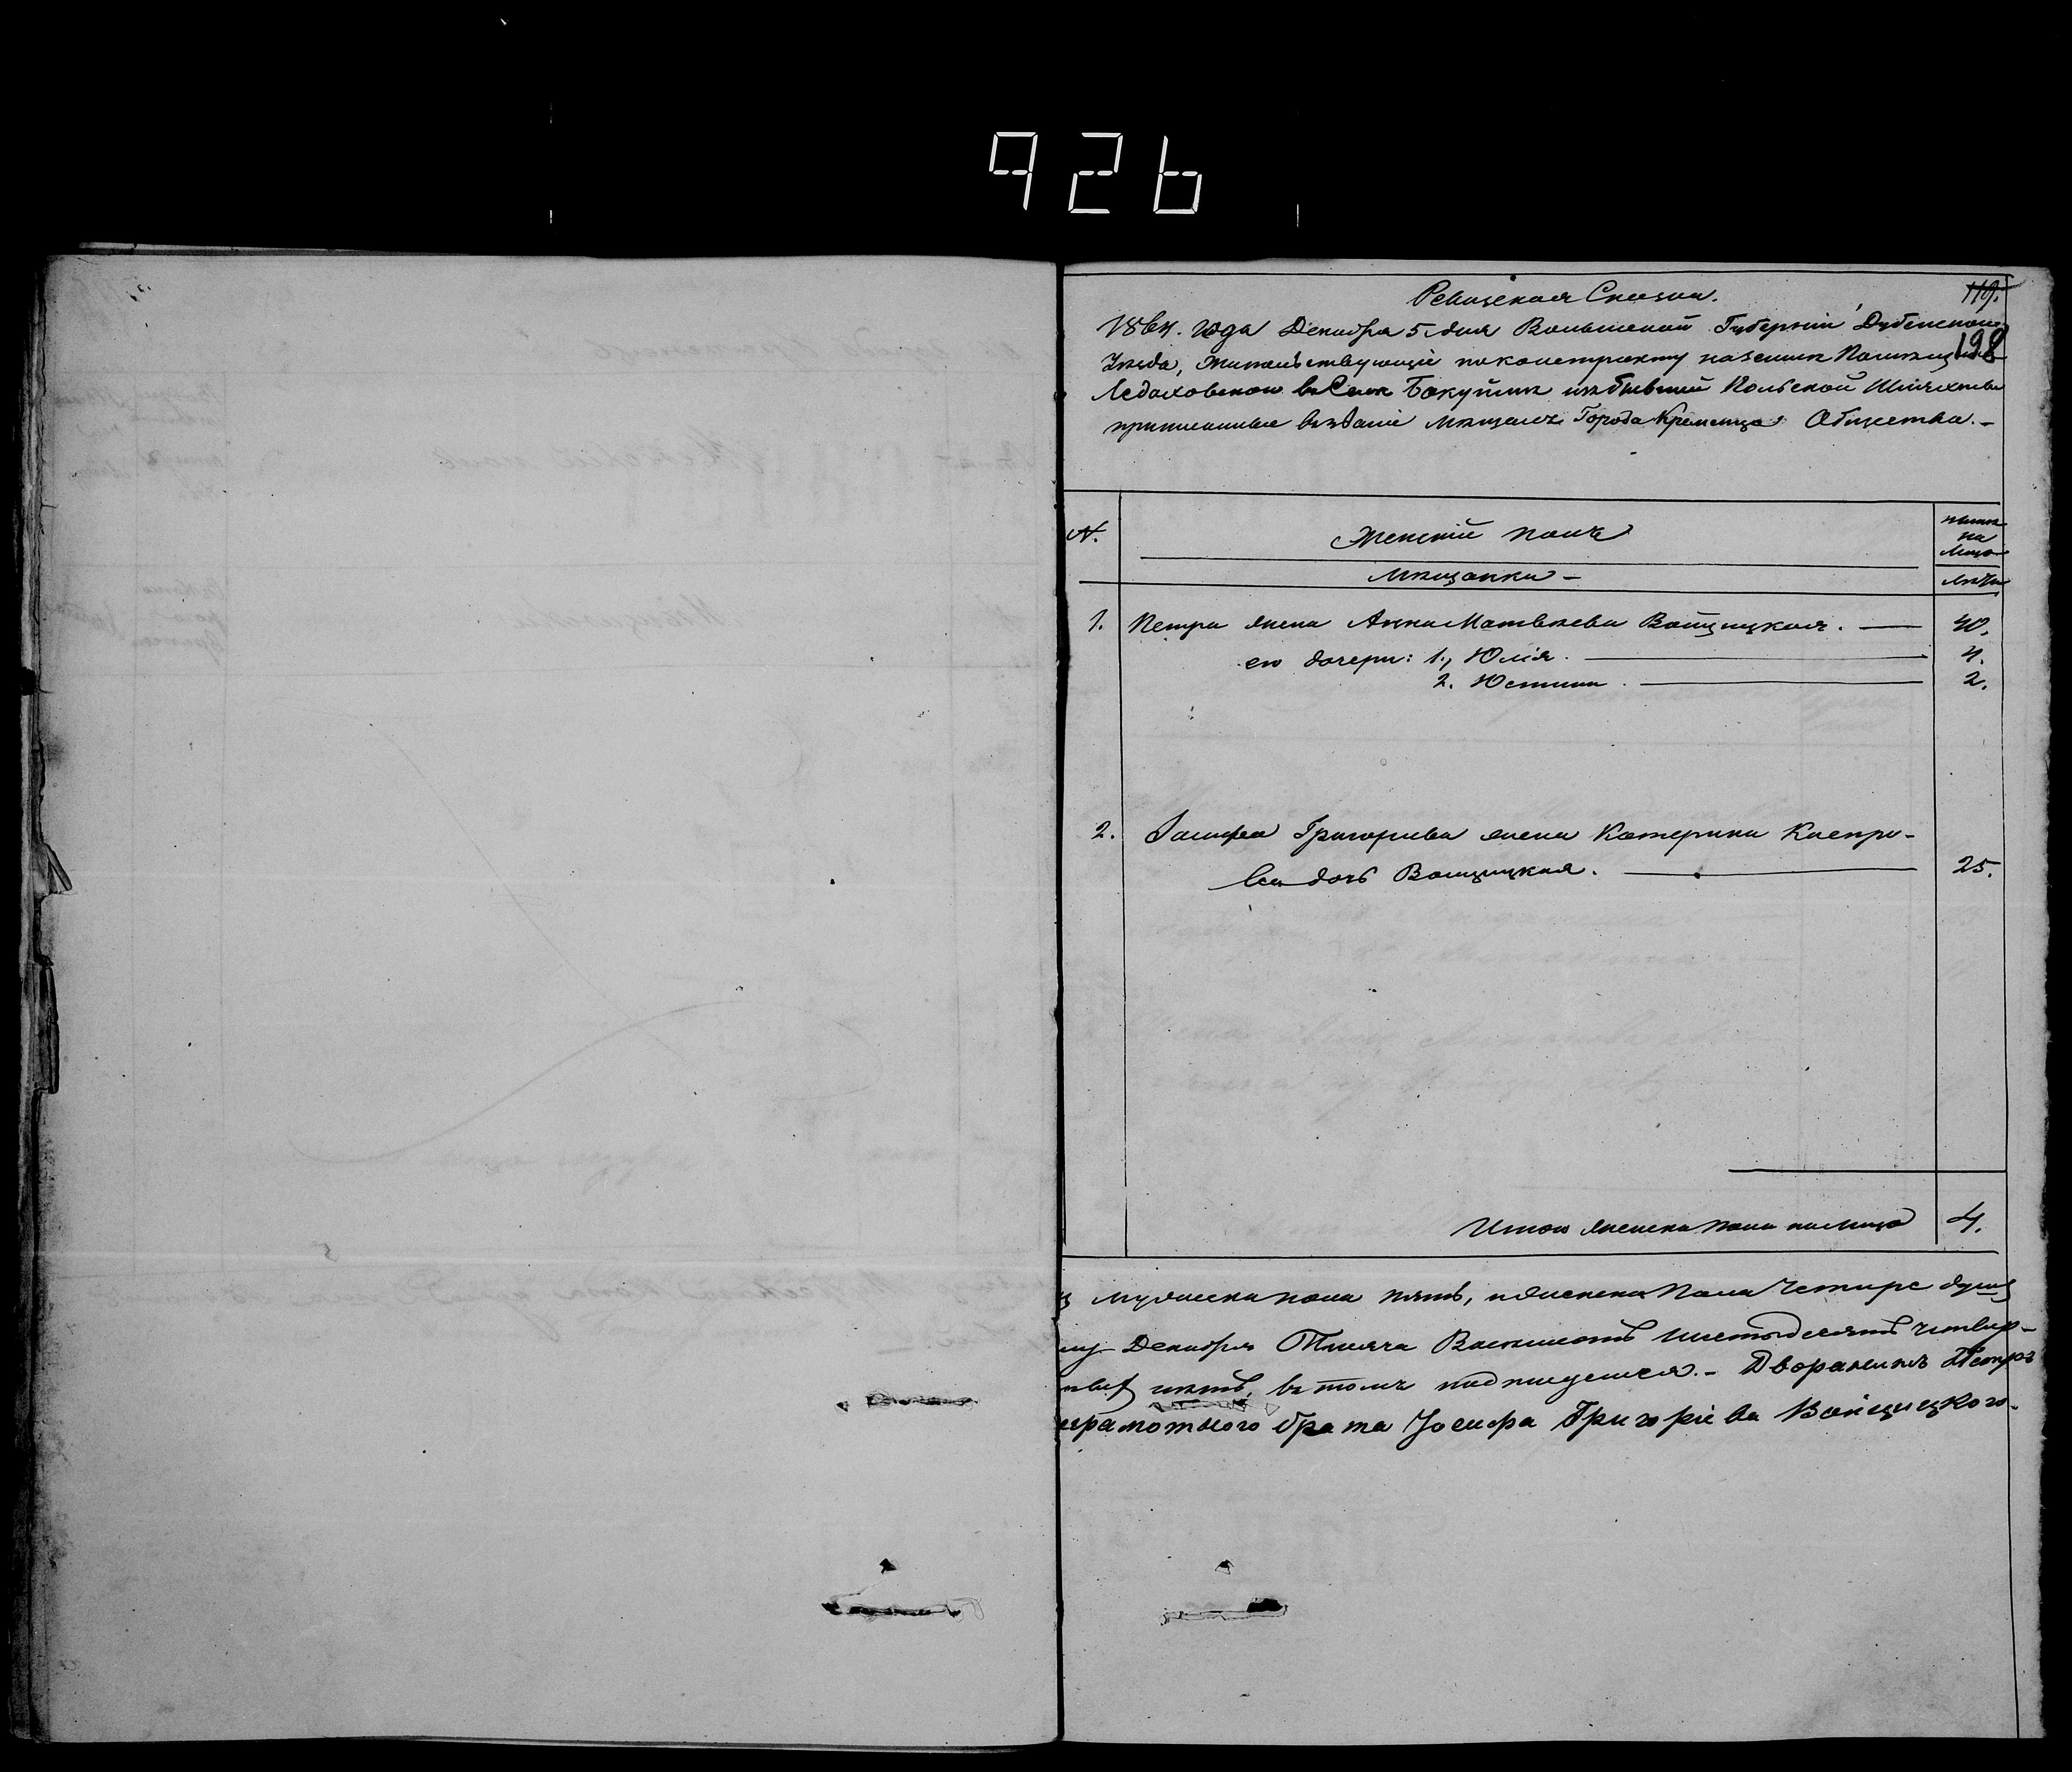 926
Ревизская Сказка.
119.
1864. года Декабря 5 дня Волынской Губерніи Дубенскаго
198
Уѣзда, жительствующіе по контракту на землѣ Помѣщика
Ледоховского въ Селѣ Бокуймѣ изъ бывшей Польской Шляхты
причисленные въ званіе мѣщанъ Города Кременца Общества. -
№. Женскій полъ нынѣ
на
лицо
Мѣщанки - лѣты
1. Петра жена Анна Матвѣева Войцицкая. — 40.
его дочери: 1., Юлія. — 4.
2. Юстина. — 2.
2. Іосифа Григорьева жена Катерина Каспро-
ва дочь Войцицкая. — 25.
Итого женска пола на лицо 4.
мужеска пола пять, и женска пола четыре душ
Декабря Тысяча Восемьсотъ шестьдесятъ четвер-
въ томъ подпишемся. - Дворанинъ Петръ
грамотного брата Іосифа Григоріева Войцицкого.